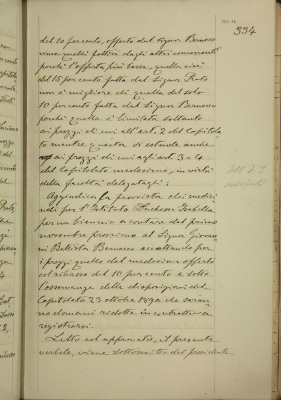 334
del 10 per cento, offerto dal Signor Bernocco
quelli fattivi dagli altri concorrenti
perché l'offerta più bassa, quella cioè
del 15 per cento fatta dal Signor Prato
non è migliore di quella del solo
10 per cento fatta dal Signor Bernocco
perché quella è limitata soltanto
ai prezzi di cui all'art. 2 del Capitola
to mentre questa si estende anche
ai prezzi di cui agli art. 3 e 4
del Capitolato medesimo, in virtù
delle facoltà delegategli;
Aggiudica la provvista dei medici
nali per l'Istituto
per un biennio a contare dal primo
novembre prossimo al Signor Giovan
ni Battista Bernocco accettando per
i prezzi quello dal medesimo offerto
col ribasso del 10 per cento e sotto
l'osservanza delle disposizioni del
Capitolato 23 ottobre 1890 che saran
no domani ridotte in contratto a
registrarsi.
Letto ed approvato, il presente
verbale, viene sottoscritto dal presidente